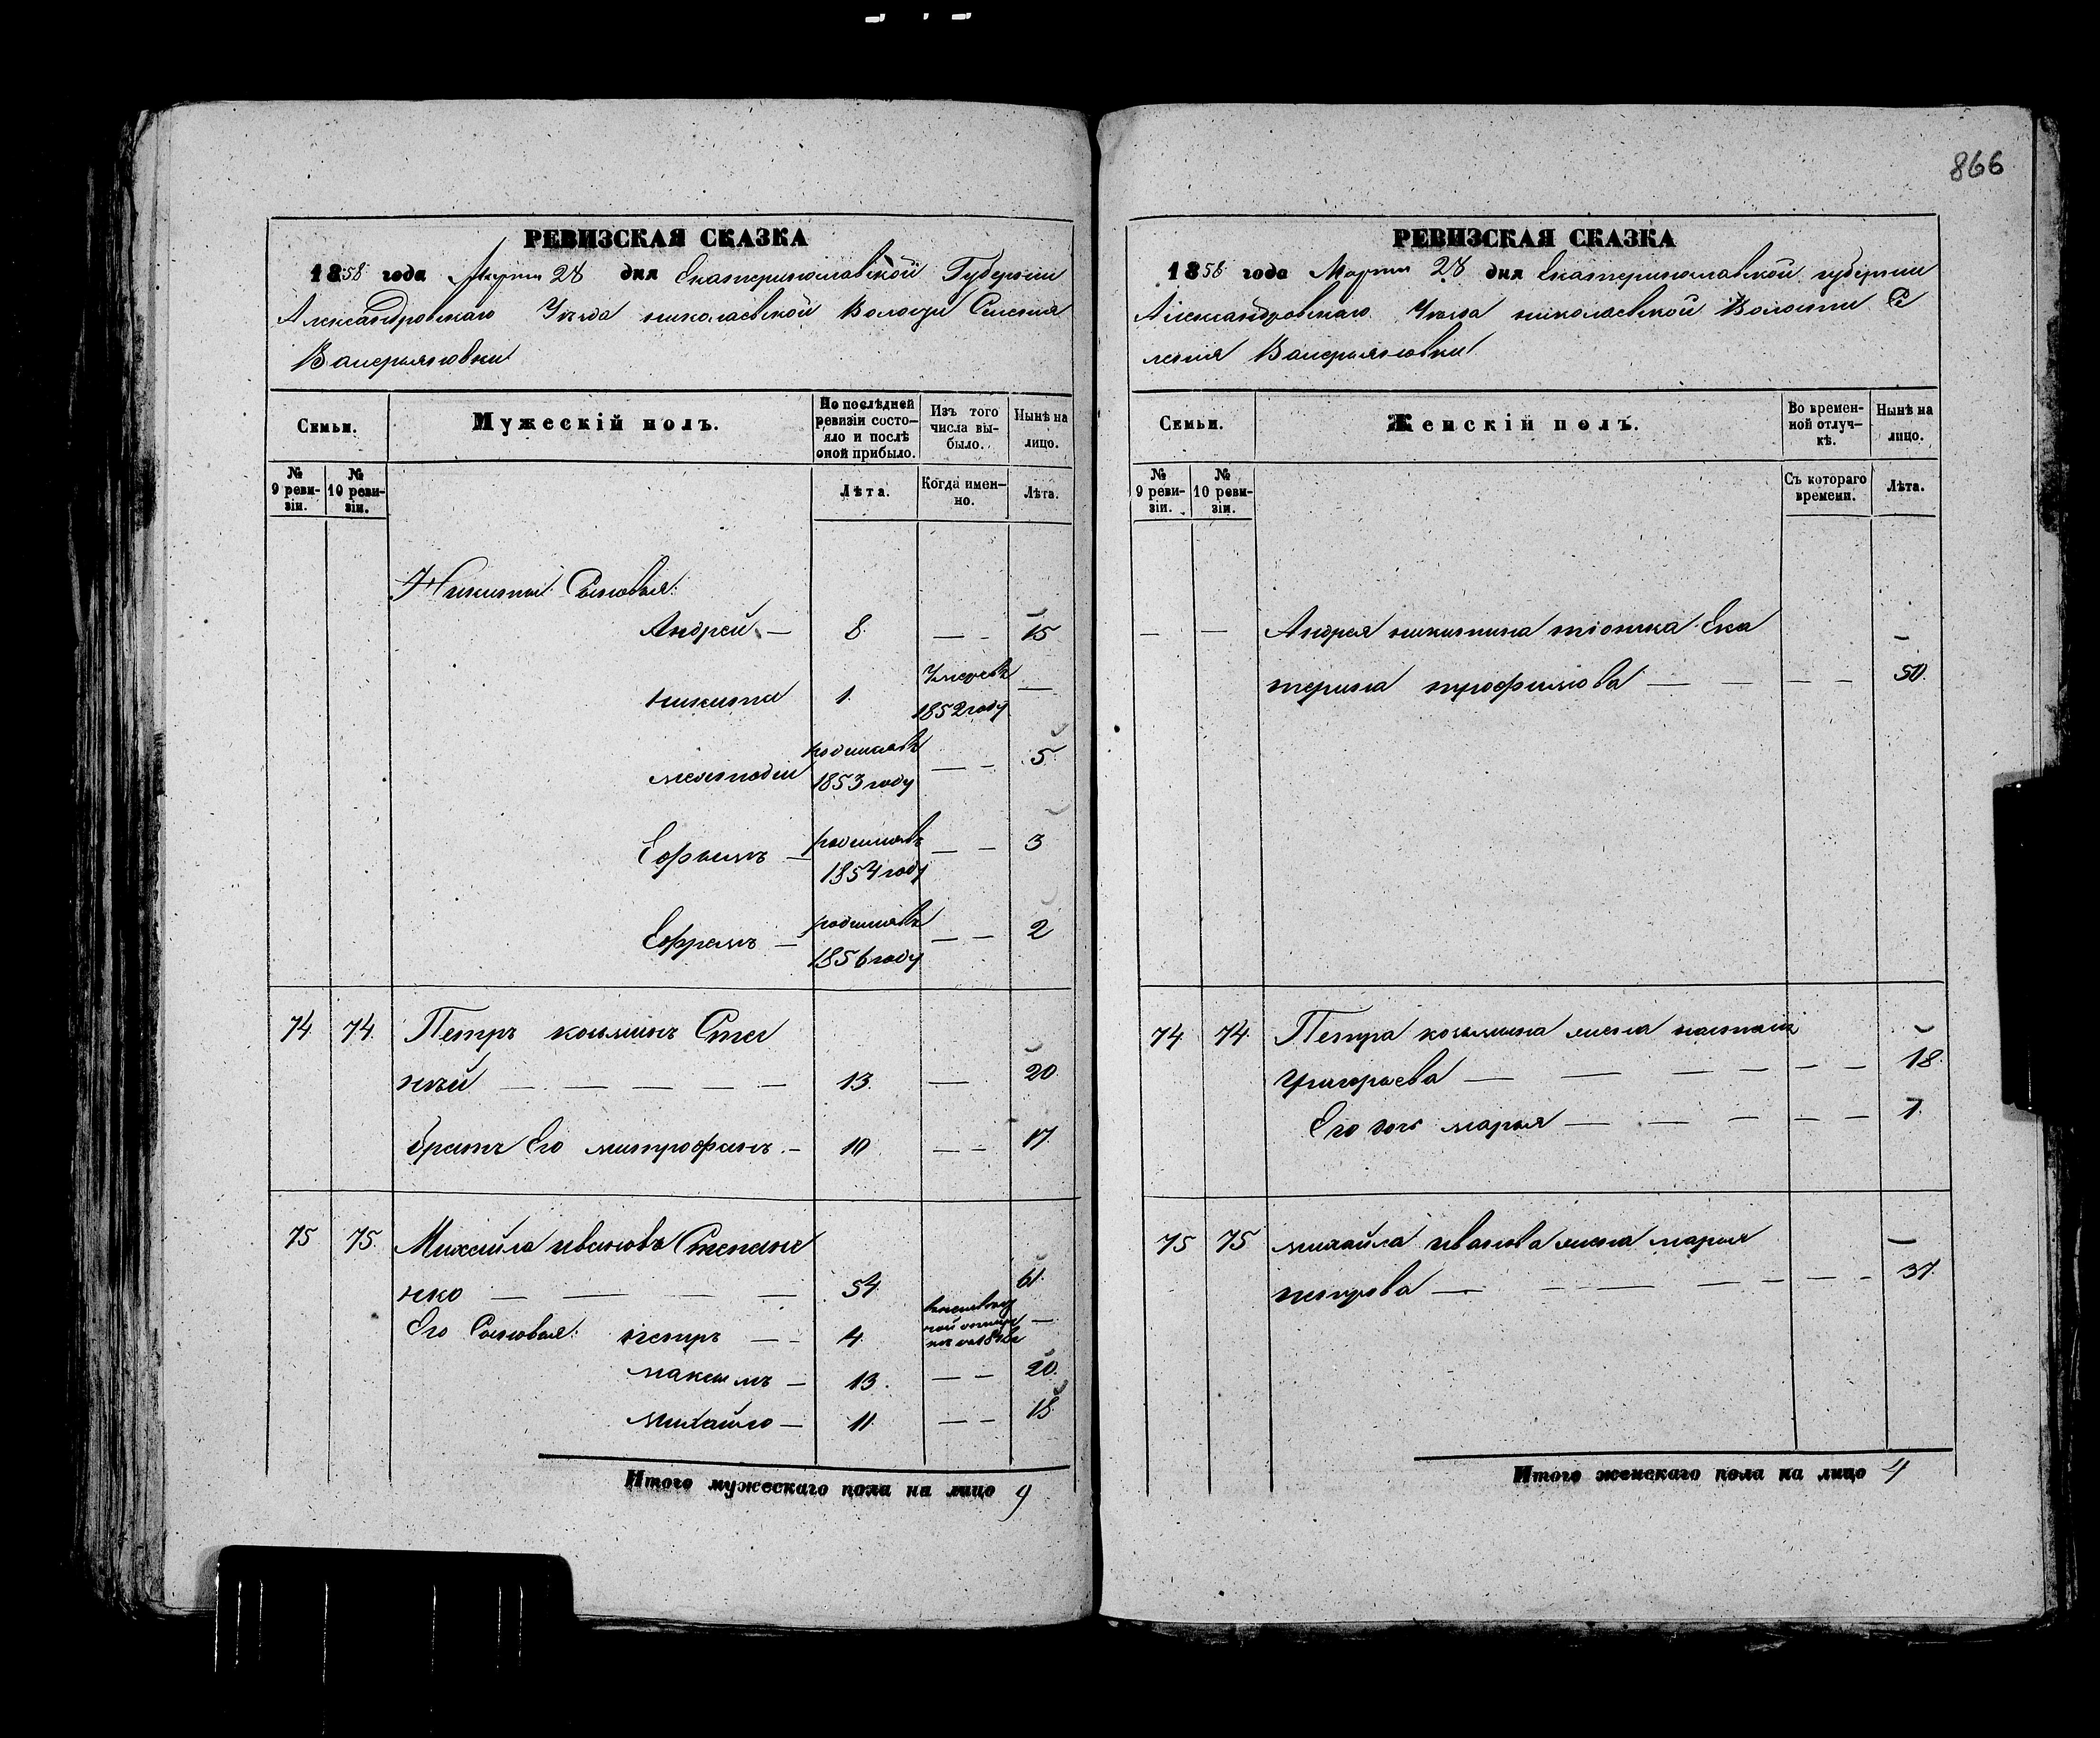 866
РЕВИЗСКАЯ СКАЗКА
1858 года Марта 28 дня Екатеринославской Губернии
Александровскаго Уезда николаевской Волости Селения
Валерьяновки
Семьи.
Мужескій полъ.
По послѣдней ревизіи состояло и послѣ оной прибыло.
Изъ того числа выбыло.
Нынѣ на лицо.
№ 9 ревизіи.
№ 10 ревизіи.
Лѣта.
Когда именно.
Лѣта.
Никиты Сыновья:
Андрей — 8. — - 15
никита 1. Умеръ въ 1852 году —
мефтодии родился въ 1853 году — - 5
Ефимъ — родился въ 1854 году — - 3
Ефремъ — родился въ 1856 году — - 2
74. 74. Петръ козминъ Сте
нъй — — — — — 13. — 20
братъ Его митрофанъ. - 10 — - 17.
75 75. Михайла ивановъ Степане
нко — — — — 54 61.
Его Сыновья: петръ — - 4
максимъ — 13. — - 20.
михайло — 11. — - 18
Итого мужескаго пола на лицо 9
РЕВИЗСКАЯ СКАЗКА
1858 года Марта 28 дня Екатеринославской губернии
Александровскаго Уезда николаевской Волости Се
ления Валерьяновки
Семьи.
Женскій полъ.
Во временной отлучкѣ.
Нынѣ на лицо.
№ 9 ревизіи.
№ 10 ревизіи.
Съ котораго времени.
Лѣта.
— — Андрея никитина тіотка Ека
терина трофимова — — — — 50.
74. 74. Петра козьмина жена
григорьева — — — — — — 18.
Его дочь марья — — — — — 1.
75 75 михайла иванова жена марья
петрова — — — — - — — 37.
Итого женскаго пола на лицо 4